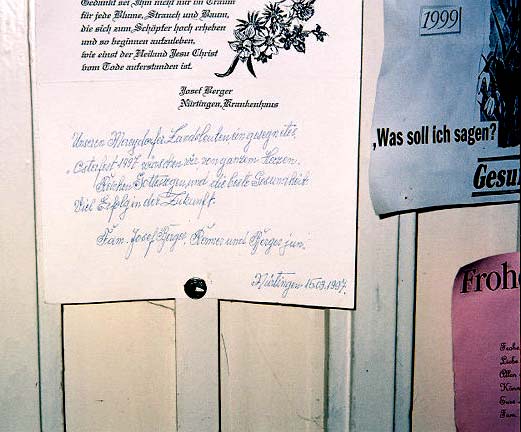 Gedankt sei Ihm nicht nur im Traum
für jede Blume, Strauch und Baum,
die sich zum Schöpfer hoch erheben
und so beginnen aufzuleben,
wie einst der Heiland Jesu Christ
vom Tode auferstanden ist.
Josef Berger
Nürtingen, Krankenhaus
Unseren Landsleuten ein gesegnetes
Osterfest 1997 wünschen wir von ganzem Herzen.
Reichen Gottessegen und die beste Gesundheit
Viel Erfolg in der Zukunft.
Fam. Josef Berger, und Berger jun.
Nürtingen 15.03.1997
1999
„Was soll ich sagen?
Gesu
Froh
Frohe
Liebe
Allen
Eure
Fam.